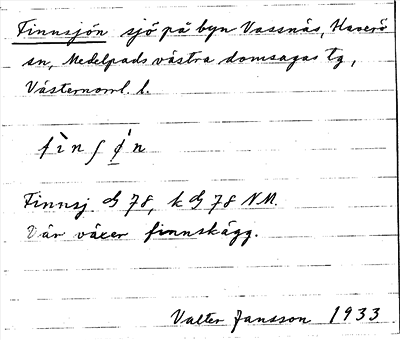 Finnsjön sjö på byn Vassnäs, Haverö
sn, Medelpads västra domsagas tg,
Västernorrl. l.
fìnʃǿn
Finnsj. G 78, k G 78 NM.
Där växer finnskägg.
Valter Jansson 1933